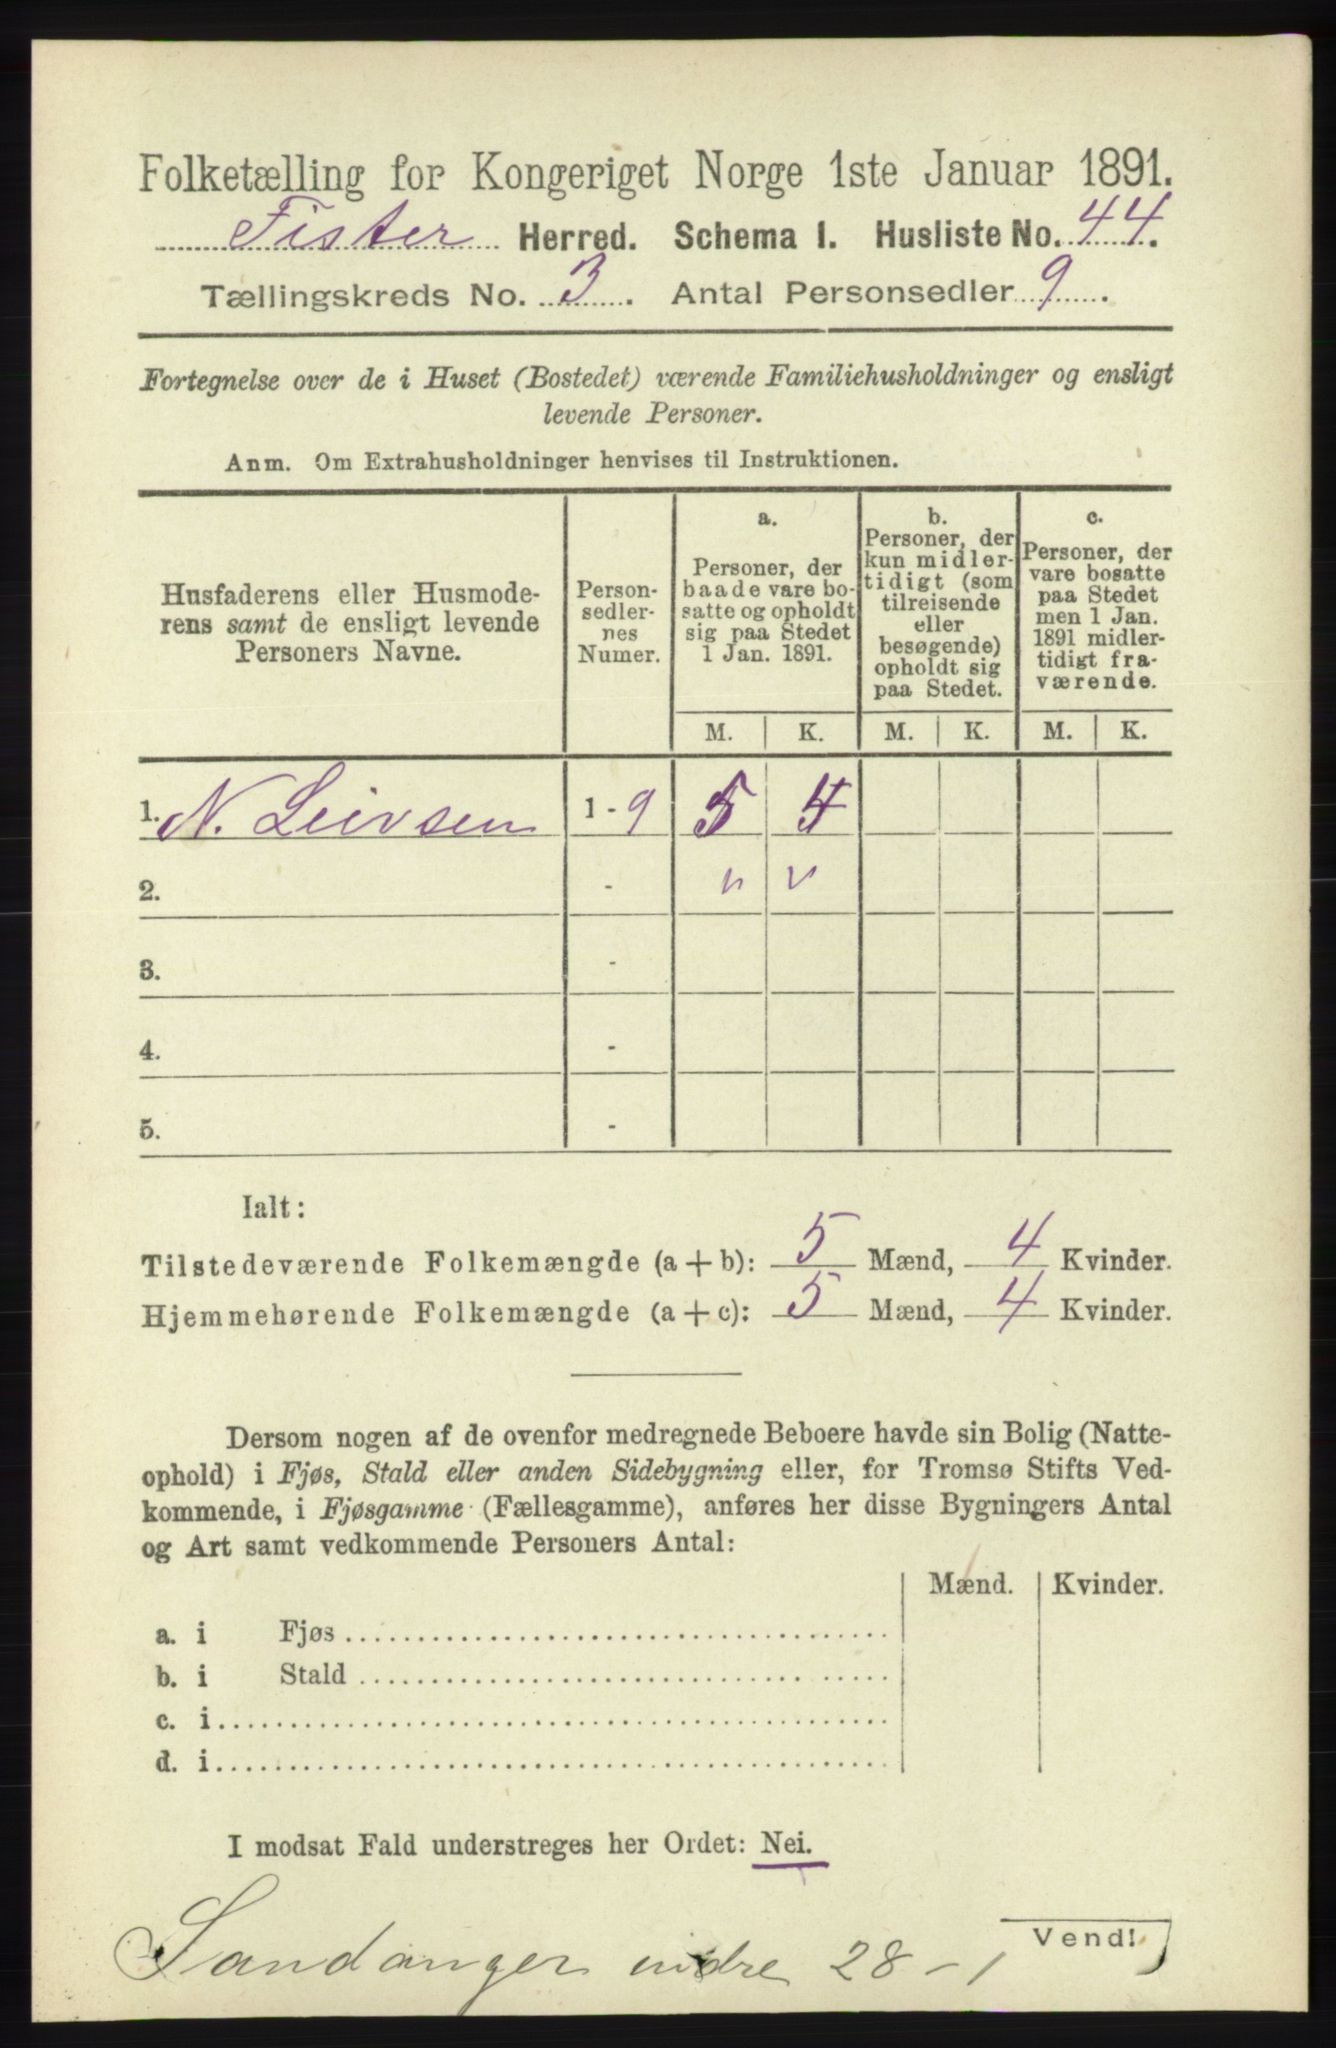 Folketælling for Kongeriget Norge 1ste Januar 1891.
Fister Herred. Schema I. Husliste No. 44.
Tællingskreds No. 3. Antal Personsedler 9.
Fortegnelse over de i Huset (Bostedet) værende Familiehusholdninger og ensligt
levende Personer.
Anm. Om Extrahusholdninger henvises til Instruktionen.
Husfaderens eller Husmode-
rens samt de ensligt levende
Personers Navne.
Person-
sedler-
nes
Numer.
a.
Personer, der
baade vare bo-
satte og opholdt
sig paa Stedet
1 Jan. 1891.
b.
Personer, der
kun midler-
tidigt (som
tilreisende
eller
besøgende)
opholdt sig
paa Stedet.
c.
Personer, der
vare bosatte
paa Stedet
men 1 Jan.
1891 midler-
tidigt fra-
værende.
M. K. M. K. M. K.
1. N. Leivsen 1 - 9 5 4
2. - " "
3. -
4. -
5. -
Ialt:
Tilstedeværende Folkemængde (a + b): 5 Mænd, 4 Kvinder.
Hjemmehørende Folkemængde (a + c): 5 Mænd, 4 Kvinder.
Dersom nogen af de ovenfor medregnede Beboere havde sin Bolig (Natte-
ophold) i Fjøs, Stald eller anden Sidebygning eller, for Tromsø Stifts Ved-
kommende, i Fjøsgamme (Fællesgamme), anføres her disse Bygningers Antal
og Art samt vedkommende Personers Antal:
Mænd. Kvinder.
a. i Fjøs
b. i Stald
c. i
d. i
I modsat Fald understreges her Ordet: Nei.
Vend!
Sandanger indre 28 - 1